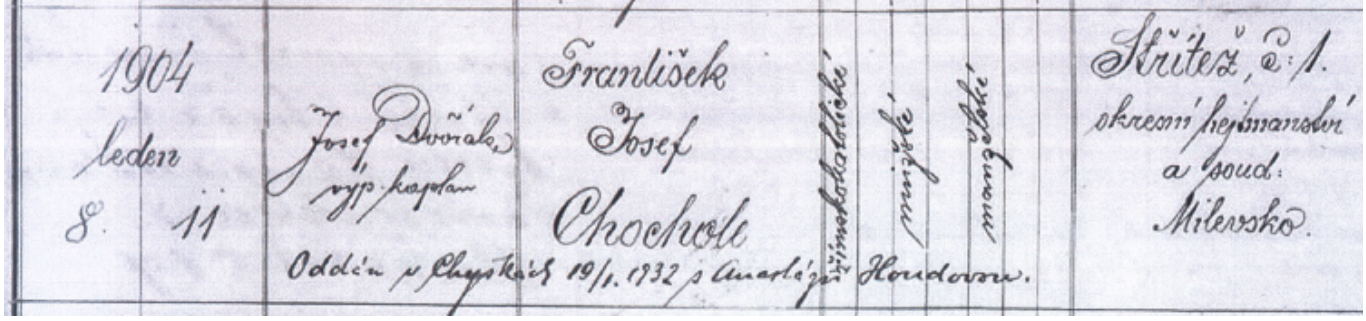 1904
leden
8. 11
Josef Dvořák
výp. kaplan
František
Josef
Chochole
římskokatolické
mužské
manželské
Střítež, č: 1.
okresní hejtmanství
a soud:
Milevsko.
Oddán v 19/1. 1932 s Anastázií Houdovou.